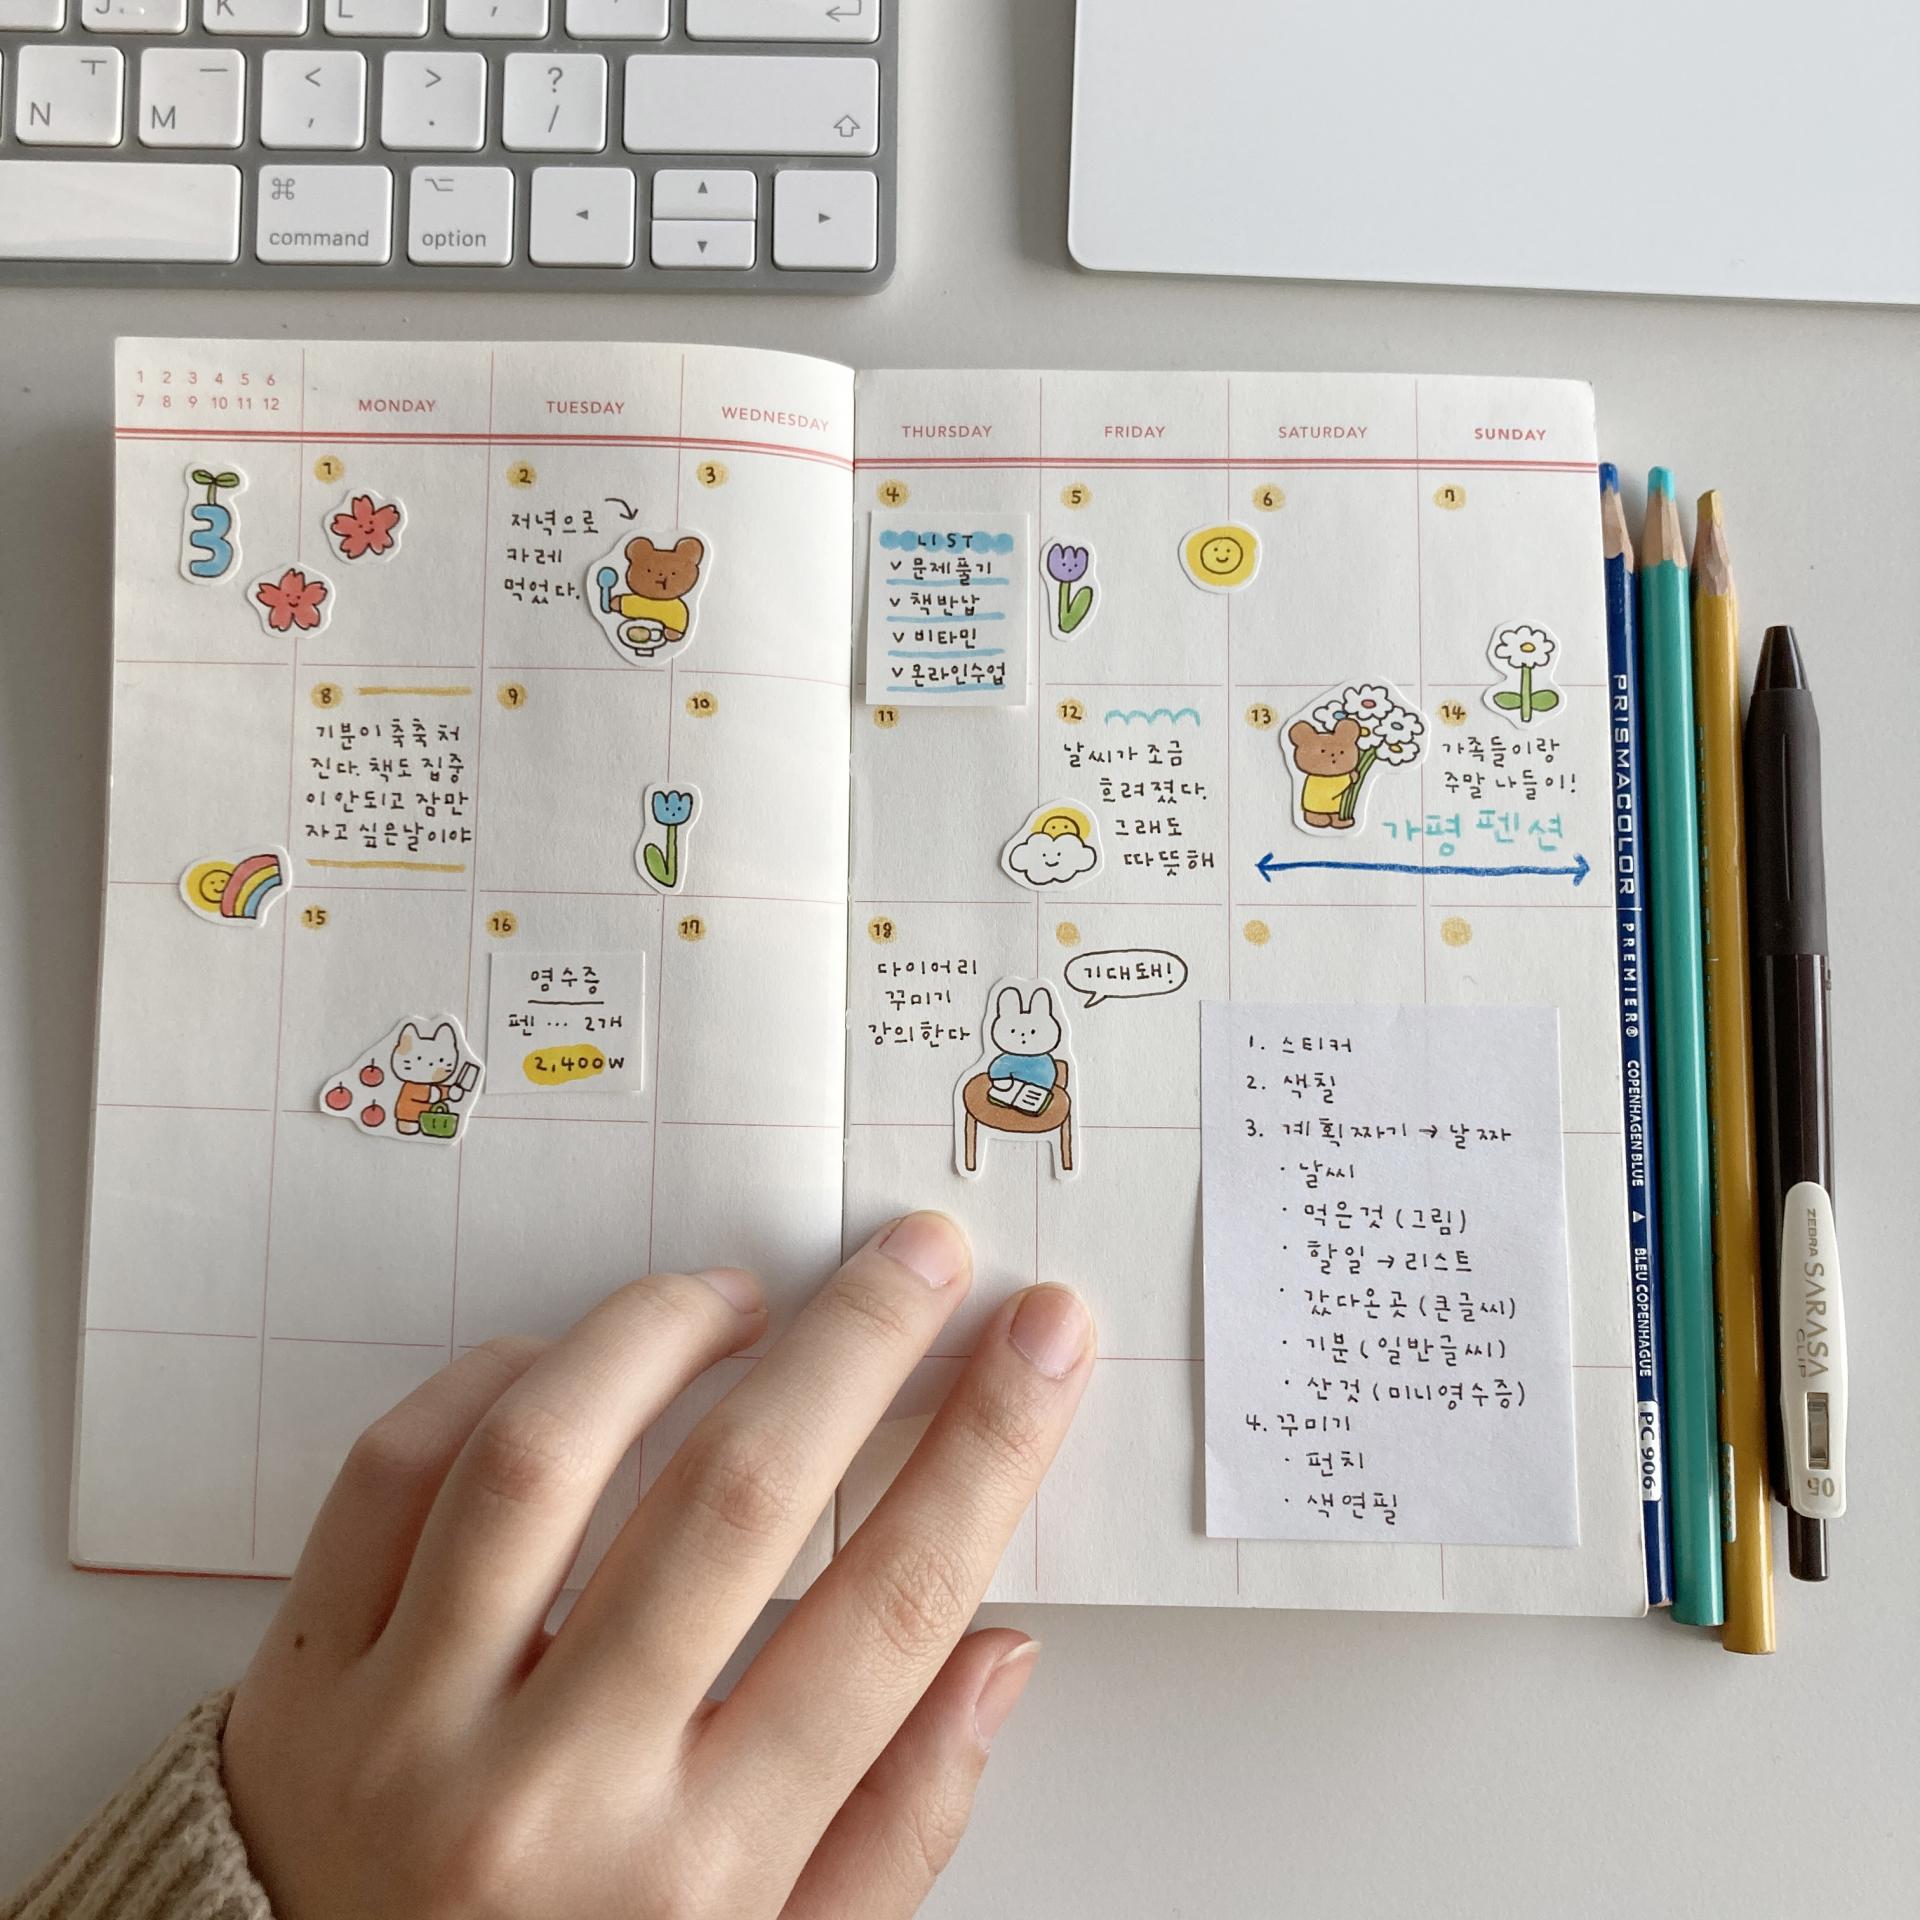 J
K
L
,
'
N ㅜ
M ㅡ
< ,
> .
? /
command
option
1 2 3 4 5 6
7 8 9 10 11 12
MONDAY
TUESDAY
WEDNESDAY
THURSDAY
FRIDAY
SATURDAY
SUNDAY
3
1
2
저녁으로
카레
먹었다.
3
4
LIST
v 문제풀기
v 책반납
v 비타민
v 온라인수업
5
6
7
8
기분이 축축 처
진다. 책도 집중
이 안되고 잠만
자고 싶은날이야
9
10
11
12
날씨가 조금
흐려졌다.
그래도
따뜻해
13
14
가족들이랑
주말 나들이!
가평 펜션
15
16
영수증
펜 ... 2개
2,400W
17
18
다이어리
꾸미기
강의한다
기대돼!
1. 스티커
2. 색칠
3. 계획짜기 → 날짜
· 날씨
· 먹은것 (그림)
· 할일 → 리스트
· 갔다온곳 (큰글씨)
· 기분 (일반글씨)
· 산것 (미니영수증)
4. 꾸미기
· 펀치
· 색연필
PRISMACOLOR PREMIER® COPENHAGEN BLUE ▲ BLEU COPENHAGUE PC 906
ZEBRA SARASA CLIP 05